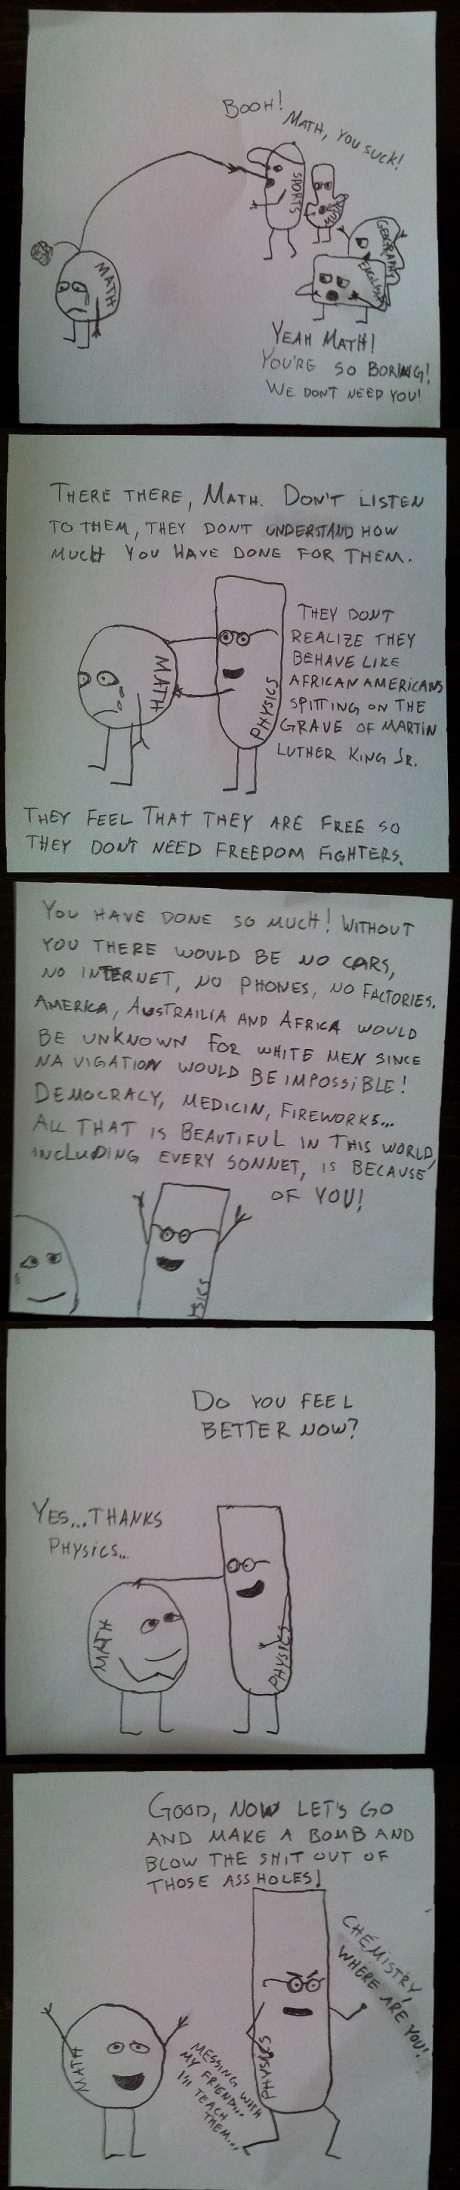 BOOH!
MATH, YOU SUCK!
SPORTS
MUSIC
GEOGRAPHY
ENGLISH
MATH
YEAH MATH!
YOU'RE SO BORING!
WE DONT NEED YOU!
THERE THERE, MATH. DON'T LISTEN
TO THEM, THEY DONT UNDERSTAND HOW
MUCH YOU HAVE DONE FOR THEM.
MATH
PHYSICS
THEY DONT
REALIZE THEY
BEHAVE LIKE
AFRICAN AMERICANS
SPITTING ON THE
GRAVE OF MARTIN
LUTHER KING JR.
THEY FEEL THAT THEY ARE FREE SO
THEY DONT NEED FREEDOM FIGHTERS.
YOU HAVE DONE SO MUCH! WITHOUT
YOU THERE WOULD BE NO CARS,
NO INTERNET, NO PHONES, NO FACTORIES.
AMERICA, AUSTRAILIA AND AFRICA WOULD
BE UNKNOWN FOR WHITE MEN SINCE
NAVIGATION WOULD BE IMPOSSIBLE!
DEMOCRACY, MEDICIN, FIREWORKS...
ALL THAT IS BEAUTIFUL IN THIS WORLD,
INCLUDING EVERY SONNET, IS BECAUSE
OF YOU!
SICS
DO YOU FEEL
BETTER NOW?
YES...THANKS
PHYSICS...
MATH
PHYSICS
GOOD, NOW LET'S GO
AND MAKE A BOMB AND
BLOW THE SHIT OUT OF
THOSE ASSHOLES!
CHEMISTRY,
WHERE ARE YOU!
MATH
MESSING WITH
MY FRIEND...
I'll TEACH
THEM...
PHYSICS